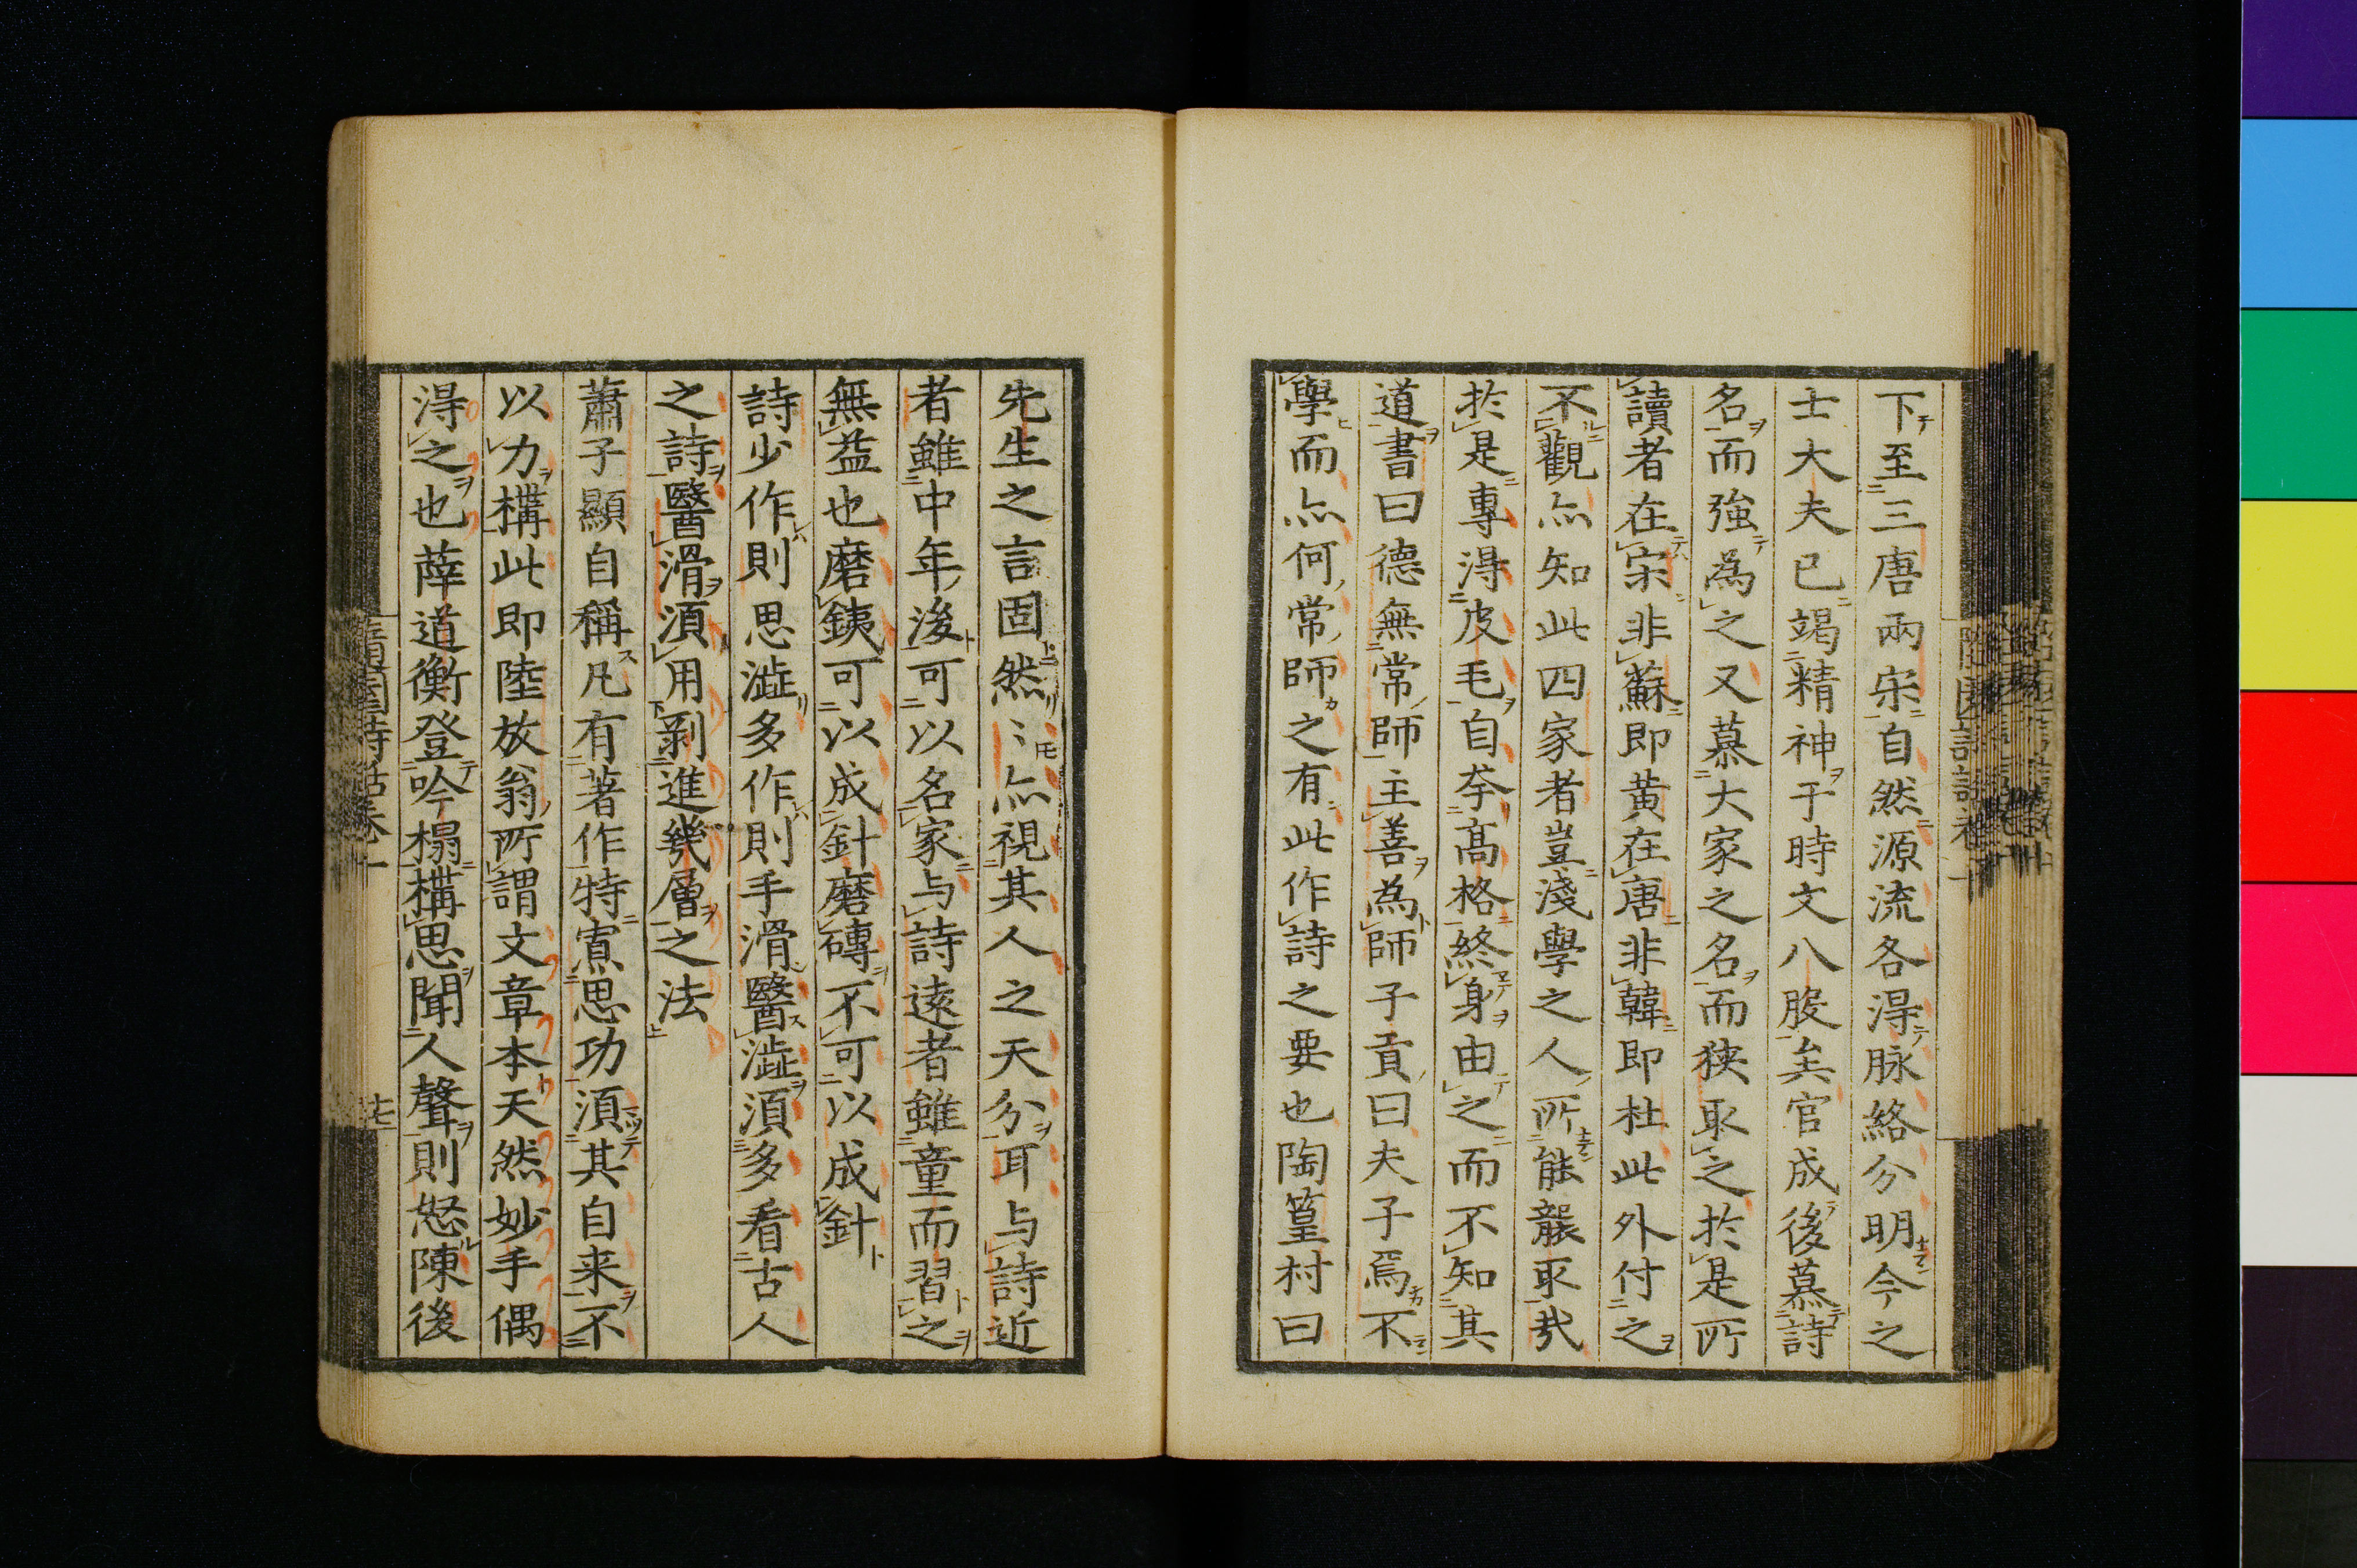 下至三唐兩宋自然源流各淂脉絡分明今之
士大夫已竭精神于時文八股矣官成後慕詩
名而強為之又慕大家之名而狹取之於是所
讀者在宋非蘇即黃在唐非韓即杜此外付之
不觀亦知此四家者豈淺學之人所能襲取哉
於是專淂皮毛自夸高格終身由之而不知其
道書曰德無常師主善為師子貢曰夫子焉不
學而亦何常師之有此作詩之要也陶篁村曰
先生之言固然〻亦視其人之天分耳与詩近
者雖中年後可以名家与詩遠者雖童而習之
無益也磨鐵可以成針磨磚不可以成針
詩少作則思澁多作則手滑醫澁須多看古人
之詩醫滑須用剥進幾層之法
蕭子顯自稱凡有著作特寡思功須其自来不
以力構此即陸放翁所謂文章本天然妙手偶
淂之也薛道衡登吟榻構思聞人聲則怒陳後
隨園詩話卷一
十七